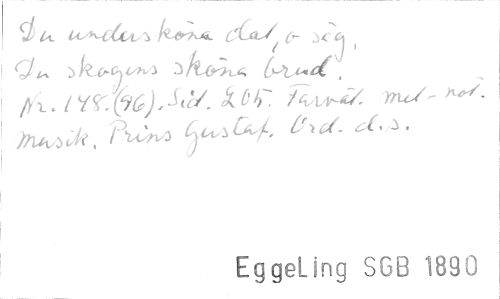 Du undersköna dal, o säg,
Du skogens sköna brud.
Nr. 148. (96). Sid. 205. Farväl. mel-not.
musik. Prins Gustaf. Ord. d.s.
EggeLing SGB 1890